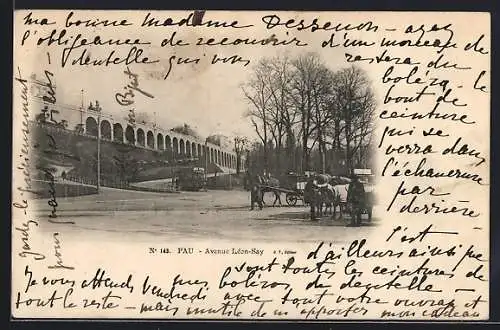 ma bonne madame Dessenon - ayez
l'obligeance de recouvrir d'un morceau de
dentelle qui vous restera du
boléro - le
bout de
ceinture
qui se
verra dans
l'échancrure
par
derrière -
c'est
d'ailleurs ainsi que
sont toutes les ceintures de
boléros de dentelle -
Je vous attends vendredi avec sont votre ouvrage et
tout le reste - mais inutile de m'apporter mon cadeau
Gardez-le précieusement
pour quand
je serai
N° 143. PAU - Avenue Léon-Say